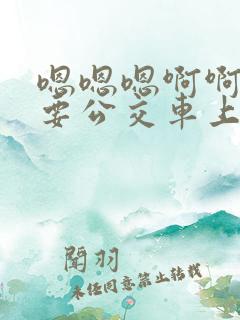 嗯嗯嗯啊啊
要公交車上
聞羽
未经同意禁止转载